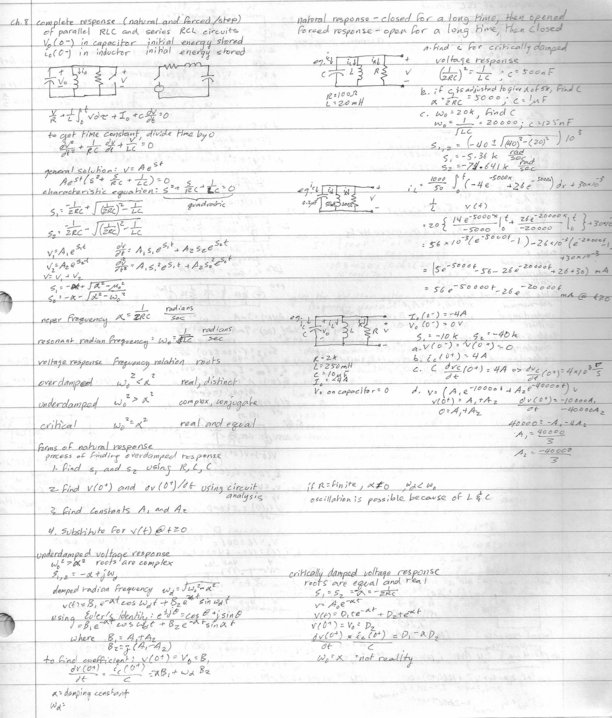 ch.8 complete response (natural and forced/step)
of parallel RLC and series RCL circuits
V₀(0-) in capacitor initial energy stored
I₀(0-) in inductor initial energy stored
to get time constant, divide time by 0
general solution: v = Ae^st
Ae^st(s² + s/RC + 1/LC) = 0
characteristic equation: s² + s/RC + 1/LC = 0
quadratic
s₁ = -1/2RC + √((1/2RC)² - 1/LC)
s₂ = -1/2RC - √((1/2RC)² - 1/LC)
v₁ = A₁e^s₁t
v₂ = A₂e^s₂t
v = v₁ + v₂
s₁ = -α + √α² - ω₀²
s₂ = -α - √α² - ω₀²
neper frequency α = 1/2RC radians/sec
resonnant radian frequency: ω₀ = 1/√LC radians/sec
voltage response frequency relation roots
overdamped ω₀² < α² real, distinct
underdamped ω₀² > α² complex, conjugate
critical ω₀² = α² real and equal
forms of natural response
process of finding overdamped response
1. find s₁ and s₂ using R, L, C
2. find v(0⁺) and dv(0⁺)/dt using circuit analysis
3. find constants A₁ and A₂
4. substitute for v(t) @ t≥0
underdamped voltage response
ω₀² > α² roots are complex
s₁,₂ = -α ± jω_d
damped radian frequency ω_d = √ω₀² - α²
v(t) = B₁e^-αt cos ω_d t + B₂e^-αt sin ω_d t
using Euler's Identity: e^jθ = cosθ + jsinθ
where B₁ = A₁ + A₂
B₂ = j(A₁ - A₂)
to find coefficient: v(0⁺) = V₀ = B₁
dv(0⁺)/dt = i_c(0⁺)/C = -αB₁ + ω_d B₂
α = damping constant
ω_d =
natural response - closed for a long time, then opened
forced response - open for a long time, then closed
a. find c for critically damped
voltage response
(1/2RC)² = 1/LC ; c = 500nF
R = 100Ω
L = 20mH
b. if C is adjusted to give α of 5k, find C
α = 1/2RC = 5000 ; C = 1μF
c. ω₀ = 20k, find C
ω₀ = 1/√LC = 20000 ; C = 125nF
s₁ = -5.36 k rad/sec
s₂ = -74.641 k rad/sec
v(t)
eg.
R = 2k
L = 250mH
C = 10nF
V₀ on capacitor = 0
I₀(0⁻) = -4A
V₀(0⁻) = 0V
s₁ = -10k s₂ = -40k
a. v(0⁻) = v(0⁺) = 0
b. i_c(0⁺) = 4A
c. C dv_c(0⁺)/dt = 4A
d. v = {A₁e^-10000t + A₂e^-40000t} v
v(0⁺) = A₁ + A₂
0 = A₁ + A₂
40000 = -A₁ - 4A₂
A₁ = 40000/3
A₂ = -40000/3
if R = finite, α ≠ 0 α < ω₀
oscillation is possible because of L & C
critically damped voltage response
roots are equal and real
s₁ = s₂ = -α = -1/2RC
v = A₀e^-αt
v(t) = D₁te^-αt + D₂e^-αt
v(0⁺) = V₀ = D₂
dv(0⁺)/dt = i_c(0⁺)/C = D₁ - αD₂
ω₀ = α *not reality